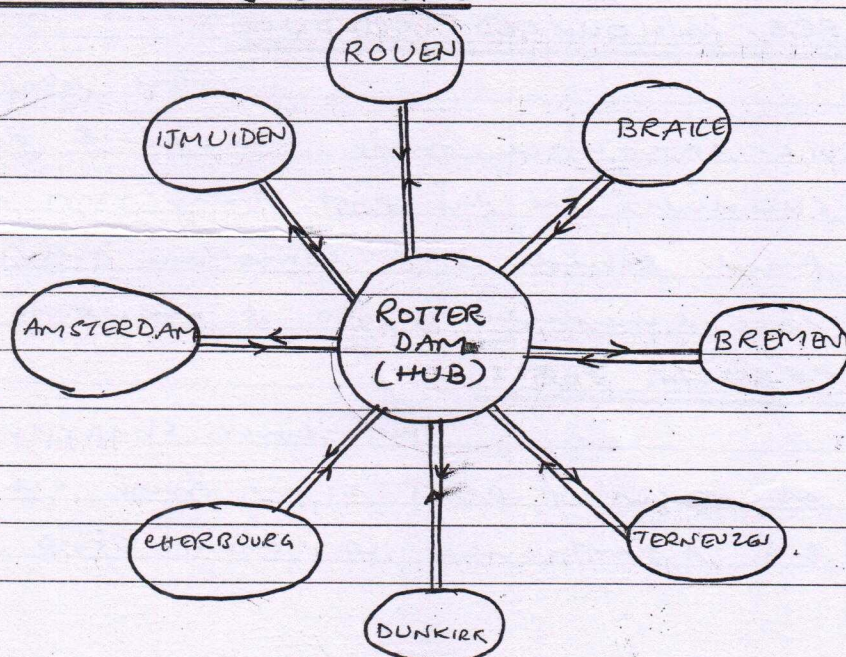 ROUEN
IJMUIDEN
BRAKE
AMSTERDAM
ROTTER
DAM
(HUB)
BREMEN
CHERBOURG
TERNEUZEN
DUNKIRK